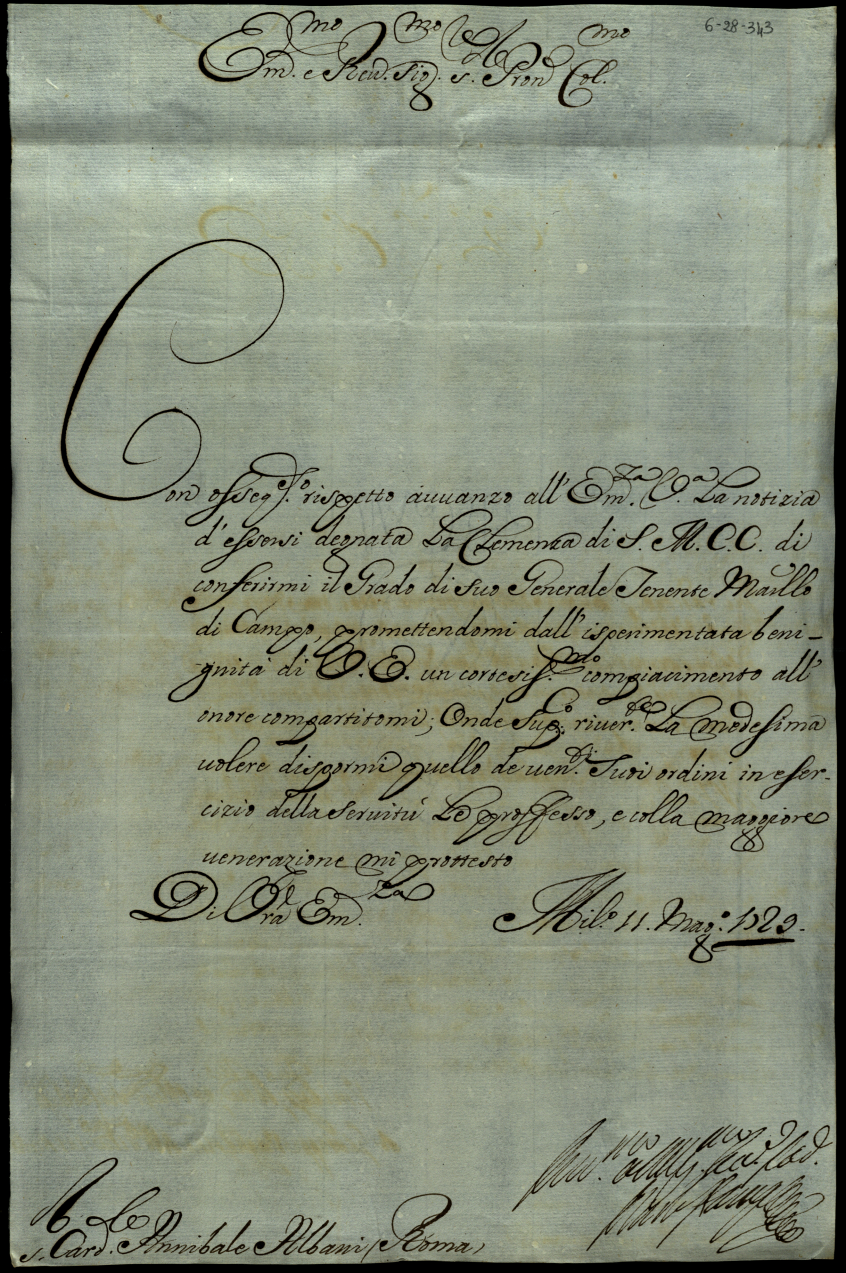 6-28-343
Em.mo e Reu.mo Sig.re s. Pron Col.mo
Con osseq.so rispetto auuanzo all' Em.za V.a La notizia
d'essersi degnata La Clemenza di S. M. C. C. di
conferirmi il Grado di suo Generale Tenente Mar.llo
di Campo, promettendomi dall' isperimentata beni-
gnità di V. E. un cortesiss.mo compiacimento all'
onore compartitomi; Onde Sup.co riuer.te La medesima
uolere dispormi quello de uen.di Suoi ordini in eser-
cizio della seruitù Le proffesso, e colla maggiore
uenerazione mi prottesto
Di Vra Em.za
Mil.o 11. Mag.o 1729.
s. Card.le Annibale Albani (Roma)